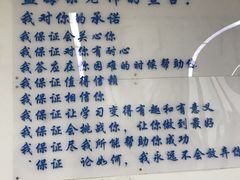 我对你的承诺
我保证会关心你
我保证对你有耐心
我答应在你困难的时候帮助你
我保证值得信赖
我保证相信你
我保证让学习变得有趣和有意义
我保证会挑战你，让你做到最好
我保证尽我所能帮助你成功
保证 论如何，我永远不会放弃你